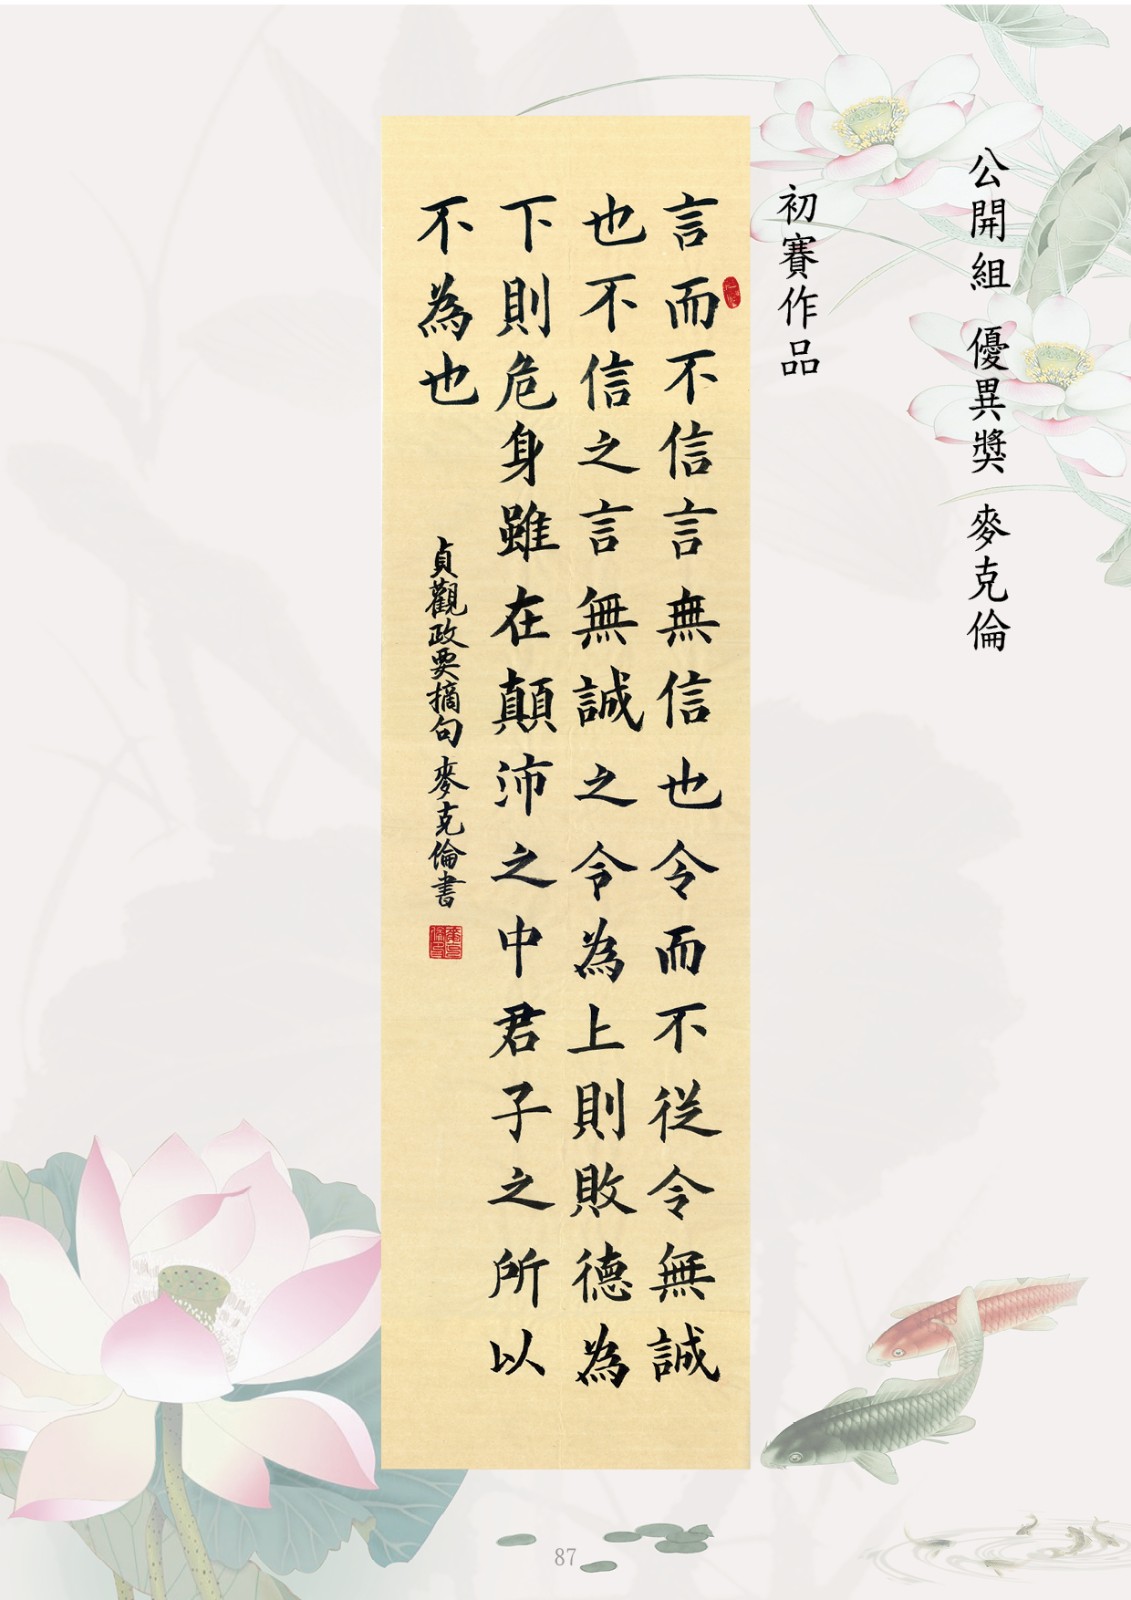 公開組 優異獎 麥克倫
初賽作品
言而不信言無信也令而不從令無誠
也不信之言無誠之令為上則敗德為
下則危身雖在顛沛之中君子之所以
不為也
貞觀政要摘句 麥克倫書
87